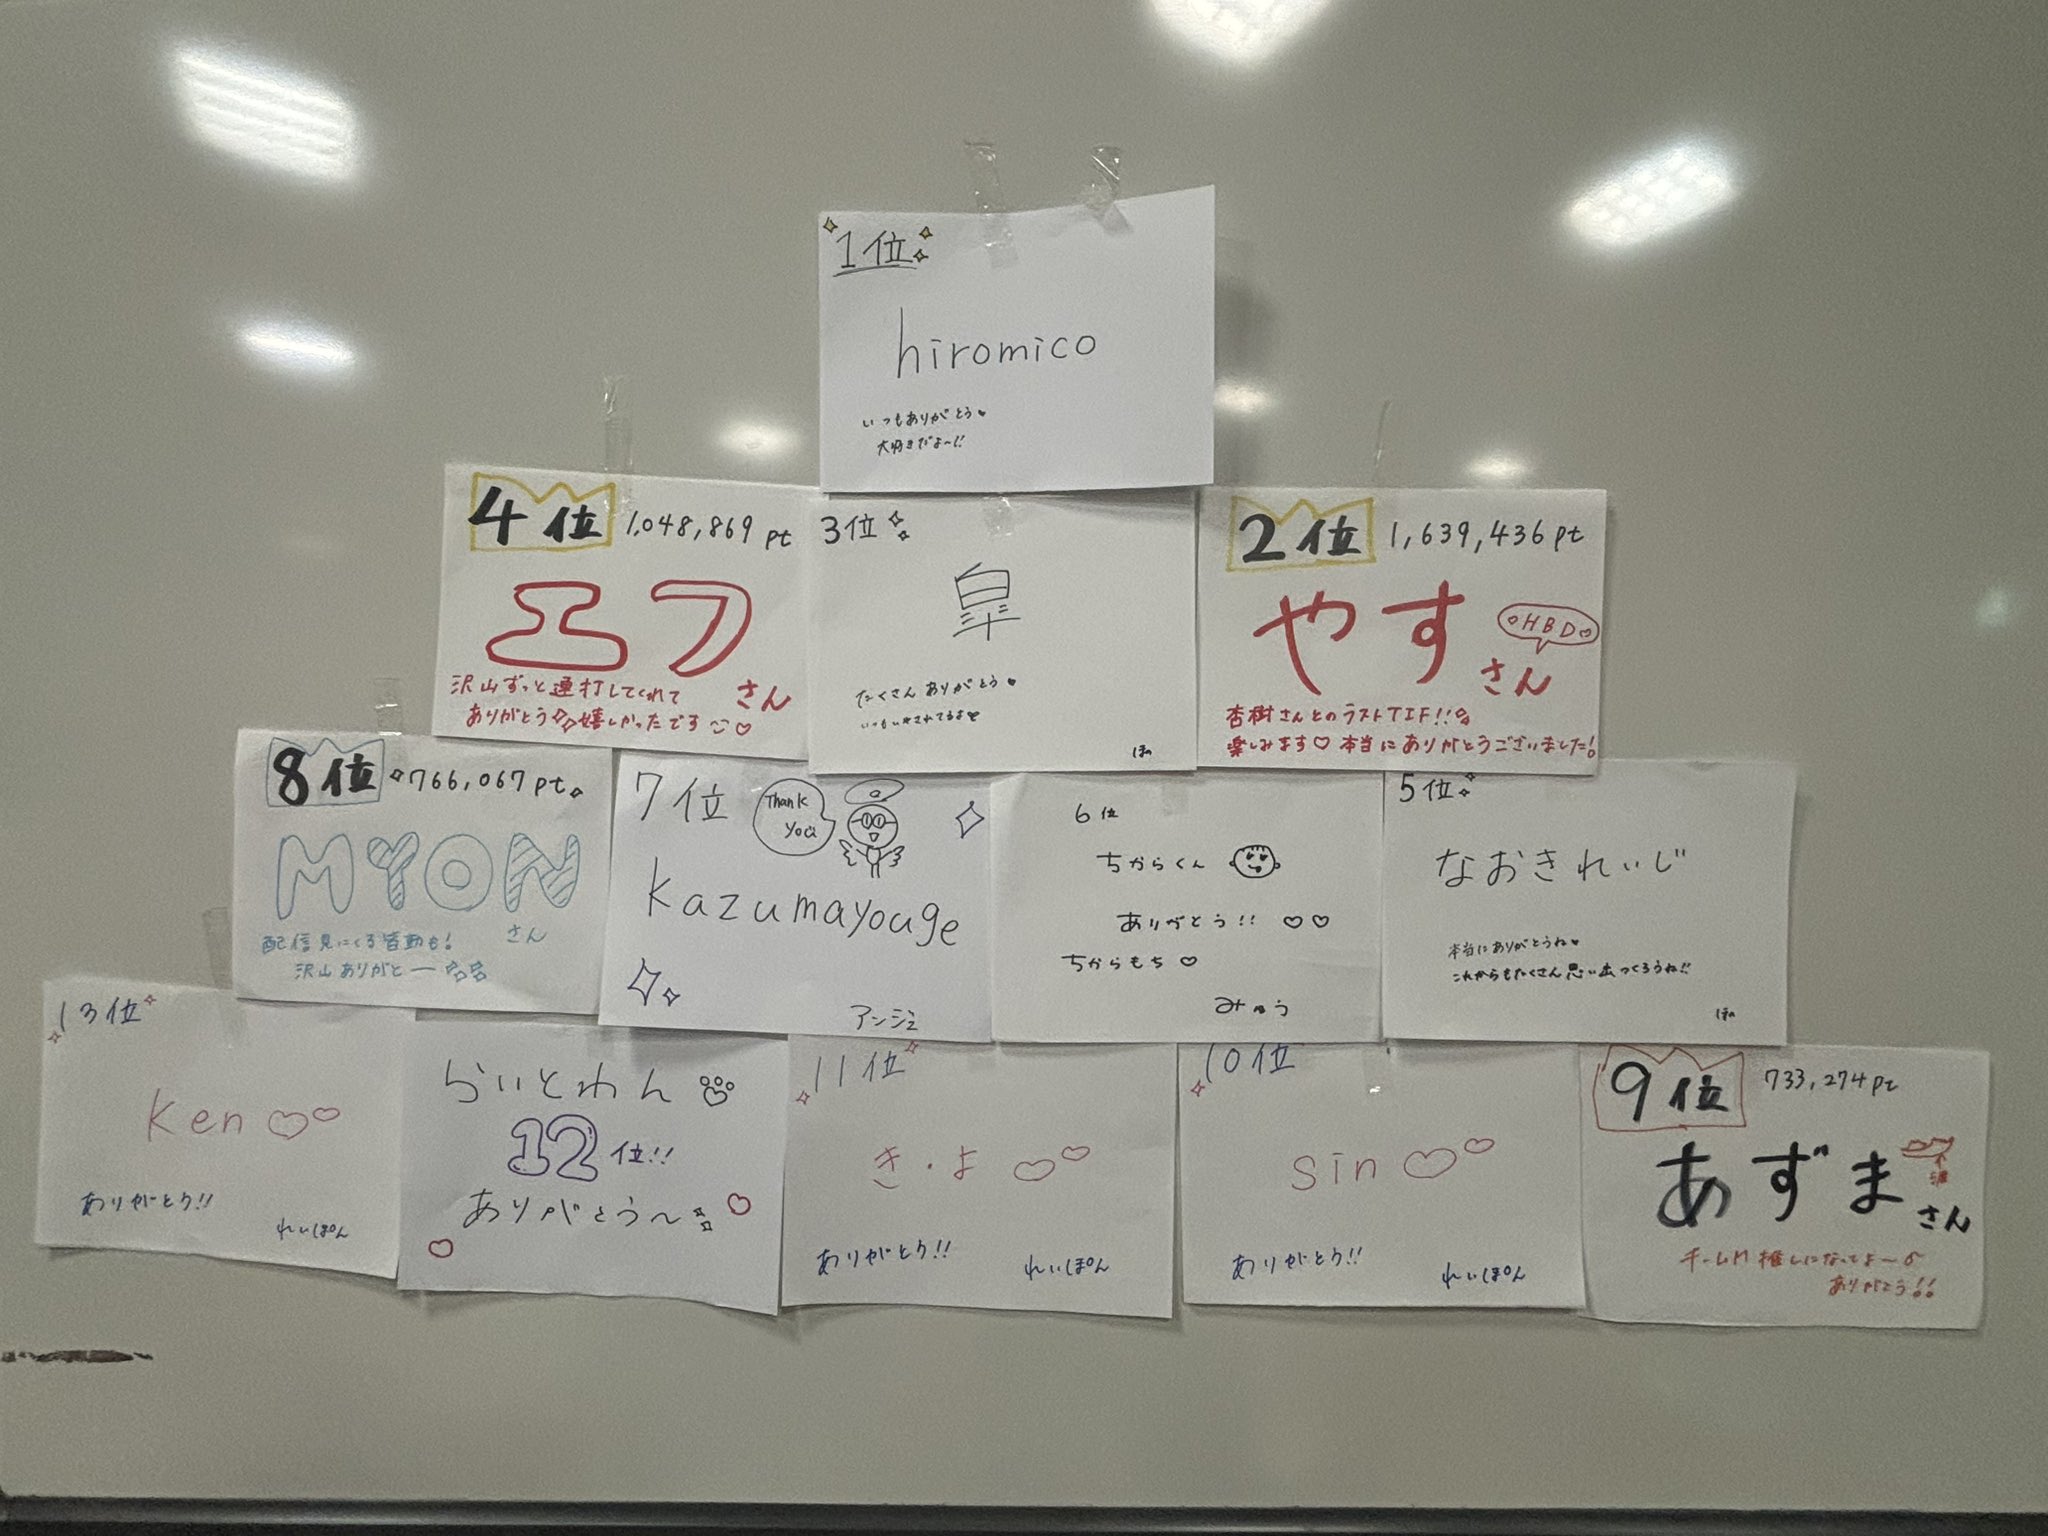 1位
hiromico
いつもありがとう♥
大好きだよ〜!!
4位 1,048,869 pt
エフ
さん
沢山ずっと連打してくれて
ありがとう 嬉しかったです ♡
3位
皐
たくさんありがとう♥
いつもいやされてるよ♥
ほの
2位 1,639,436pt
やす
♡HBD♡
さん
杏樹さんとのラストTIF!!
楽しみます♡ 本当にありがとうございました!
8位 766,067pt
MYON
さん
配信見にくる皆勤も!
沢山ありがとー
7位
Thank
you
kazumayouge
アンジュ
6位
ちからくん
ありがとう!! ♡♡
ちからもち♡
みゅう
5位
なおきれいじ
本当にありがとうね♥
これからもたくさん思い出つくろうね!!
ほの
13位
ken♡♡
ありがとう!!
れいぽん
らいとわん
12位!!
ありがとう〜
11位
き・よ ♡♡
ありがとう!!
れいぽん
10位
sin♡♡
ありがとう!!
れいぽん
9位 733,274pt
あずま
さん
チームM推しになってよ〜
ありがとう!!